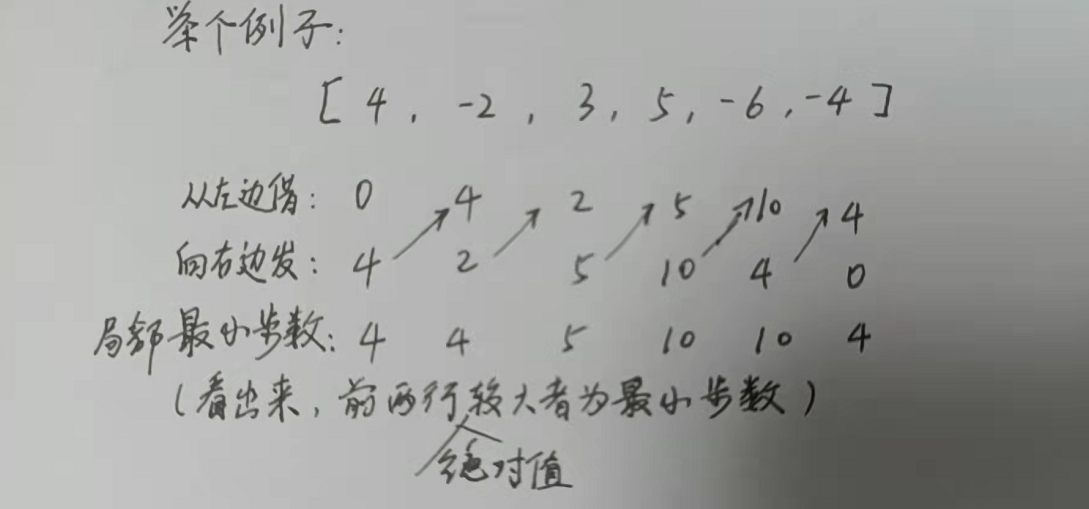 举个例子:
[ 4 , -2 , 3 , 5 , -6 , -4 ]
从左边借: 0 4 2 5 10 4
向右边发: 4 2 5 10 4 0
局部最小步数: 4 4 5 10 10 4
(看出来, 前两行较大者为最小步数)
绝对值